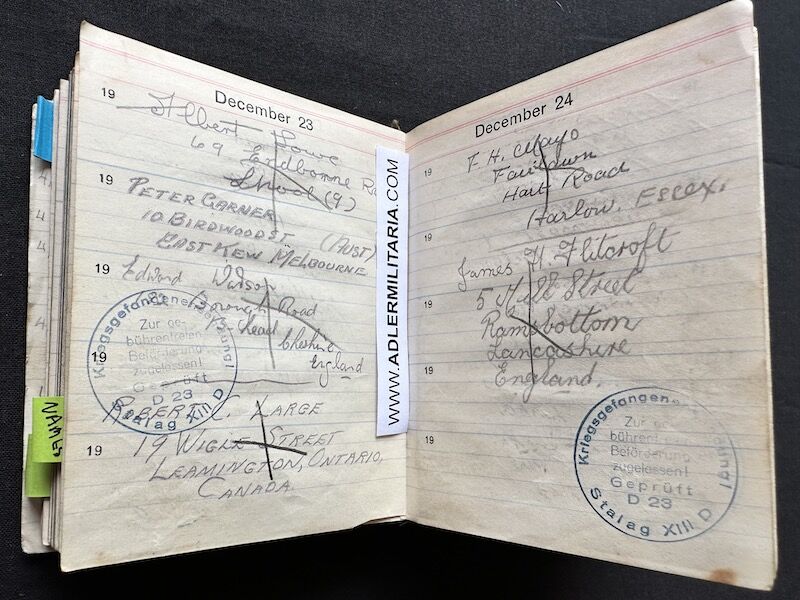 December 23
19
Albert Lowe
69 Endbonne Ra
(9)
19
PETER GARNER
10 BIRDWOOD ST (AUST)
EAST KEW MELBOURNE
19
Edward
Borough Road
B-head
Cheshire
England
Kriegsgefangenensendung!
Zur ge-
bührenfreien
Beförderung
zugelassen!
Geprüft
D 23
Stalag XIII D
19
ROBERT C. LARGE
19
19 WIGLE STREET
LEAMINGTON, ONTARIO,
CANADA.
NAMES
WWW.ADLERMILITARIA.COM
December 24
19
F. H. Mayo
Fairlawn
Hart Road
Harlow, Essex.
19
James H Flitcroft
5 Hill Street
19
Ramsbottom
Lancashire
England.
19
19
Kriegsgefangenensendung!
Zur ge-
bührenfreien
Beförderung
zugelassen!
Geprüft
D 23
Stalag XIII D